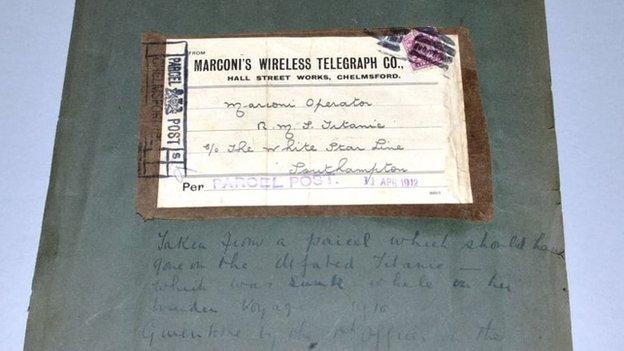 FROM
MARCONI'S WIRELESS TELEGRAPH CO.,
HALL STREET WORKS, CHELMSFORD.
PARCEL POST
Marconi Operator
R M S Titanic
c/o The White Star Line
Southampton
Per PARCEL POST. APR 1912
Taken from a parcel which should have
gone on the illfated Titanic —
which was sunk while on her
maiden voyage
by the Officer in the